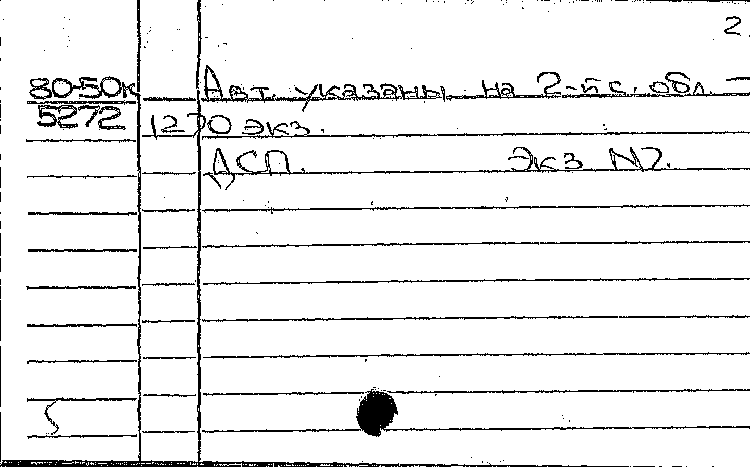 2
80-50к Авт. указаны на 2-й с. обл. –
5272 1270 экз.
ДСП. Экз N2.